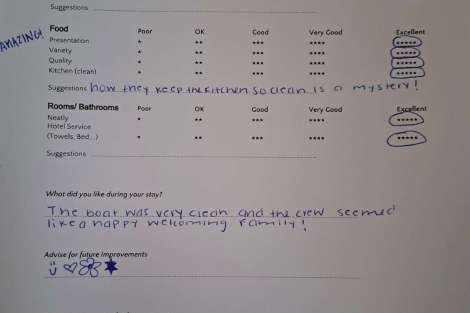 Suggestions
AMAZING!
Food Poor OK Good Very Good Excellent
Presentation * ** *** **** *****
Variety * ** *** **** *****
Quality * ** *** **** *****
Kitchen (clean) * ** *** **** *****
Suggestions how they keep the kitchen so clean is a mystery!
Rooms/ Bathrooms Poor OK Good Very Good Excellent
Neatly * ** *** **** *****
Hotel Service
(Towels, Bed...) * ** *** **** *****
Suggestions
What did you like during your stay?
The boat was very clean and the crew seemed
like a happy welcoming family!
Advise for future improvements